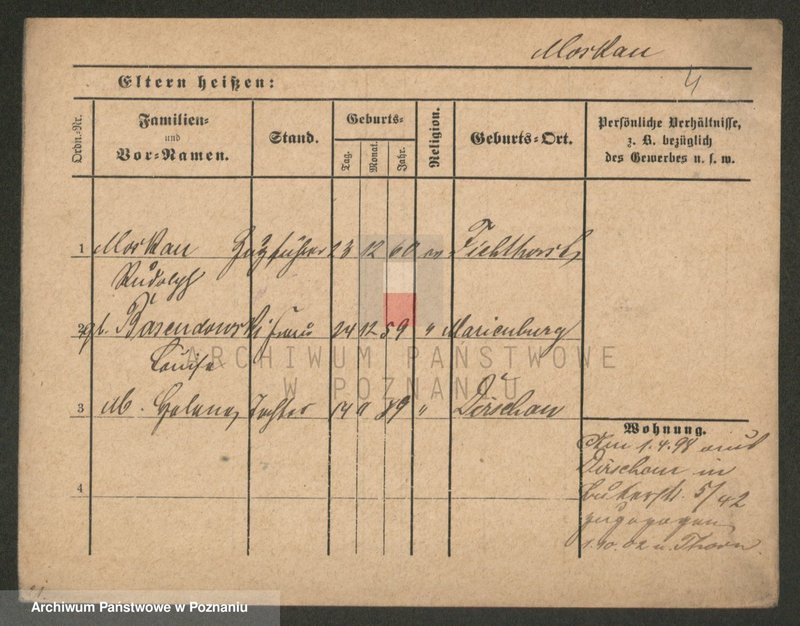 Moskau
4
Eltern heißen:
Ordn.-Nr.
Familien-
und
Vor-Namen.
Stand.
Geburts-
Tag.
Monat.
Jahr.
Religion.
Geburts-Ort.
Persönliche Verhältnisse,
z. B. bezüglich
des Gewerbes u. s. w.
1 Moskau Zugführer 23 12 60 ev Fichthorst
Rudolph
2 gb. Barendowski Frau 24 12 59 " Marienburg
Louise
3 M. Helene Tochter 14 9 89 " Dirschau
4
Wohnung.
Am 1.4.98 aus
Dirschau in
Bukerstr. 5/42
zugezogen
1.10.02 n. Thorn.
ARCHIWUM PAŃSTWOWE
W POZNANIU
Archiwum Państwowe w Poznaniu